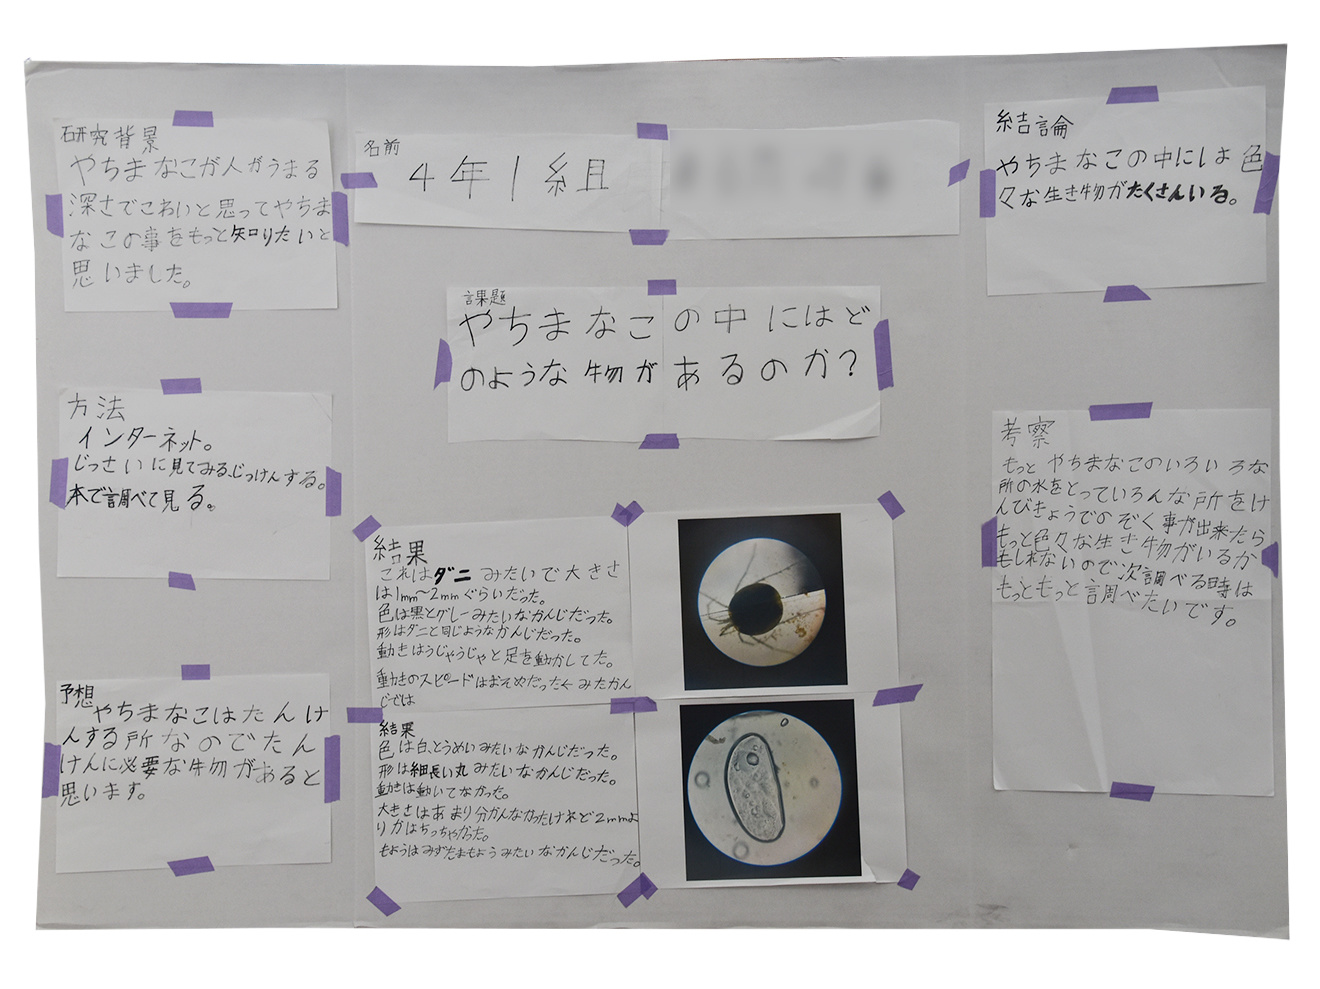 研究背景
やちまなこが人がうまる
深さでこわいと思ってやちま
なこの事をもっと知りたいと
思いました。
方法
インターネット。
じっさいに見てみる、じっけんする。
本で調べて見る。
予想
やちまなこはたんけ
んする所なのでたん
けんに必要な物があると
思います。
名前
4年1組
課題
やちまなこの中にはど
のような物があるのか?
結果
これはダニみたいで大きさ
は1mm〜2mmぐらいだった。
色は黒とグレーみたいなかんじだった。
形はダニと同じようなかんじだった。
動きはうじゃうじゃと足を動かしてた。
動きのスピードはおそめだったくみたかん
じでは
結果
色は白、とうめいみたいなかんじだった。
形は細長い丸みたいなかんじだった。
動きは動いてなかった。
大きさはあまり分かんなかったけれど2mmよ
りかはちっちゃかった。
もようはみずたまもようみたいなかんじだった。
結論
やちまなこの中にはは色
々な生き物がたくさんいる。
考察
もっとやちまなこのいろいろな
所の水をとっていろんな所をけ
んびきょうでのぞく事が出来たら
もっと色々な生き物がいるか
もしれないので次調べる時は
もっともっと調べたいです。